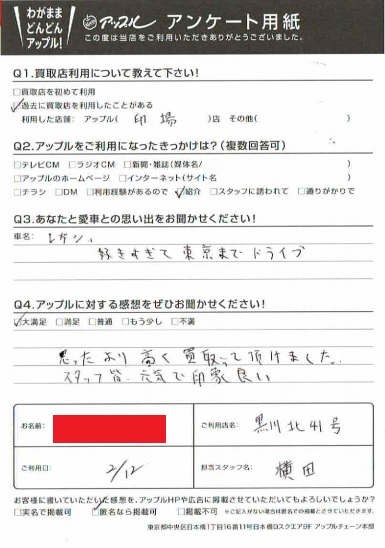 わがまま
どんどん
アップル!
アップル アンケート用紙
この度は当店をご利用いただきありがとうございました。
Q1.買取店利用について教えて下さい!
□買取店を初めて利用
☑過去に買取店を利用したことがある
利用した店舗: アップル( 印場 )店 その他( )
Q2.アップルをご利用になったきっかけは?(複数回答可)
□テレビCM □ラジオCM □新聞・雑誌(媒体名/ )
□アップルのホームページ □インターネット(サイト名 )
□チラシ □DM □利用経験があるので ☑紹介 □スタッフに誘われて □通りがかりで
Q3.あなたと愛車との思い出をお聞かせください!
車名: レガシィ
好きすぎて東京までドライブ
Q4.アップルに対する感想をぜひお聞かせください!
☑大満足 □満足 □普通 □もう少し □不満
思ったより高く買取って頂けました。
スタッフ皆、元気で印象良い
お名前:
ご利用店名: 黒川北41号
ご利用日: 2/12
担当スタッフ名: 横田
お客様に書いていただいた感想を、アップルHPや広告に掲載させていただいてもよろしいでしょうか?
□実名で掲載可 ☑匿名なら掲載可 □掲載不可 ※ご記入がない場合は匿名での掲載とさせていただきます。
東京都中央区日本橋1丁目16番11号日本橋Dスクエア9F アップルチェーン本部